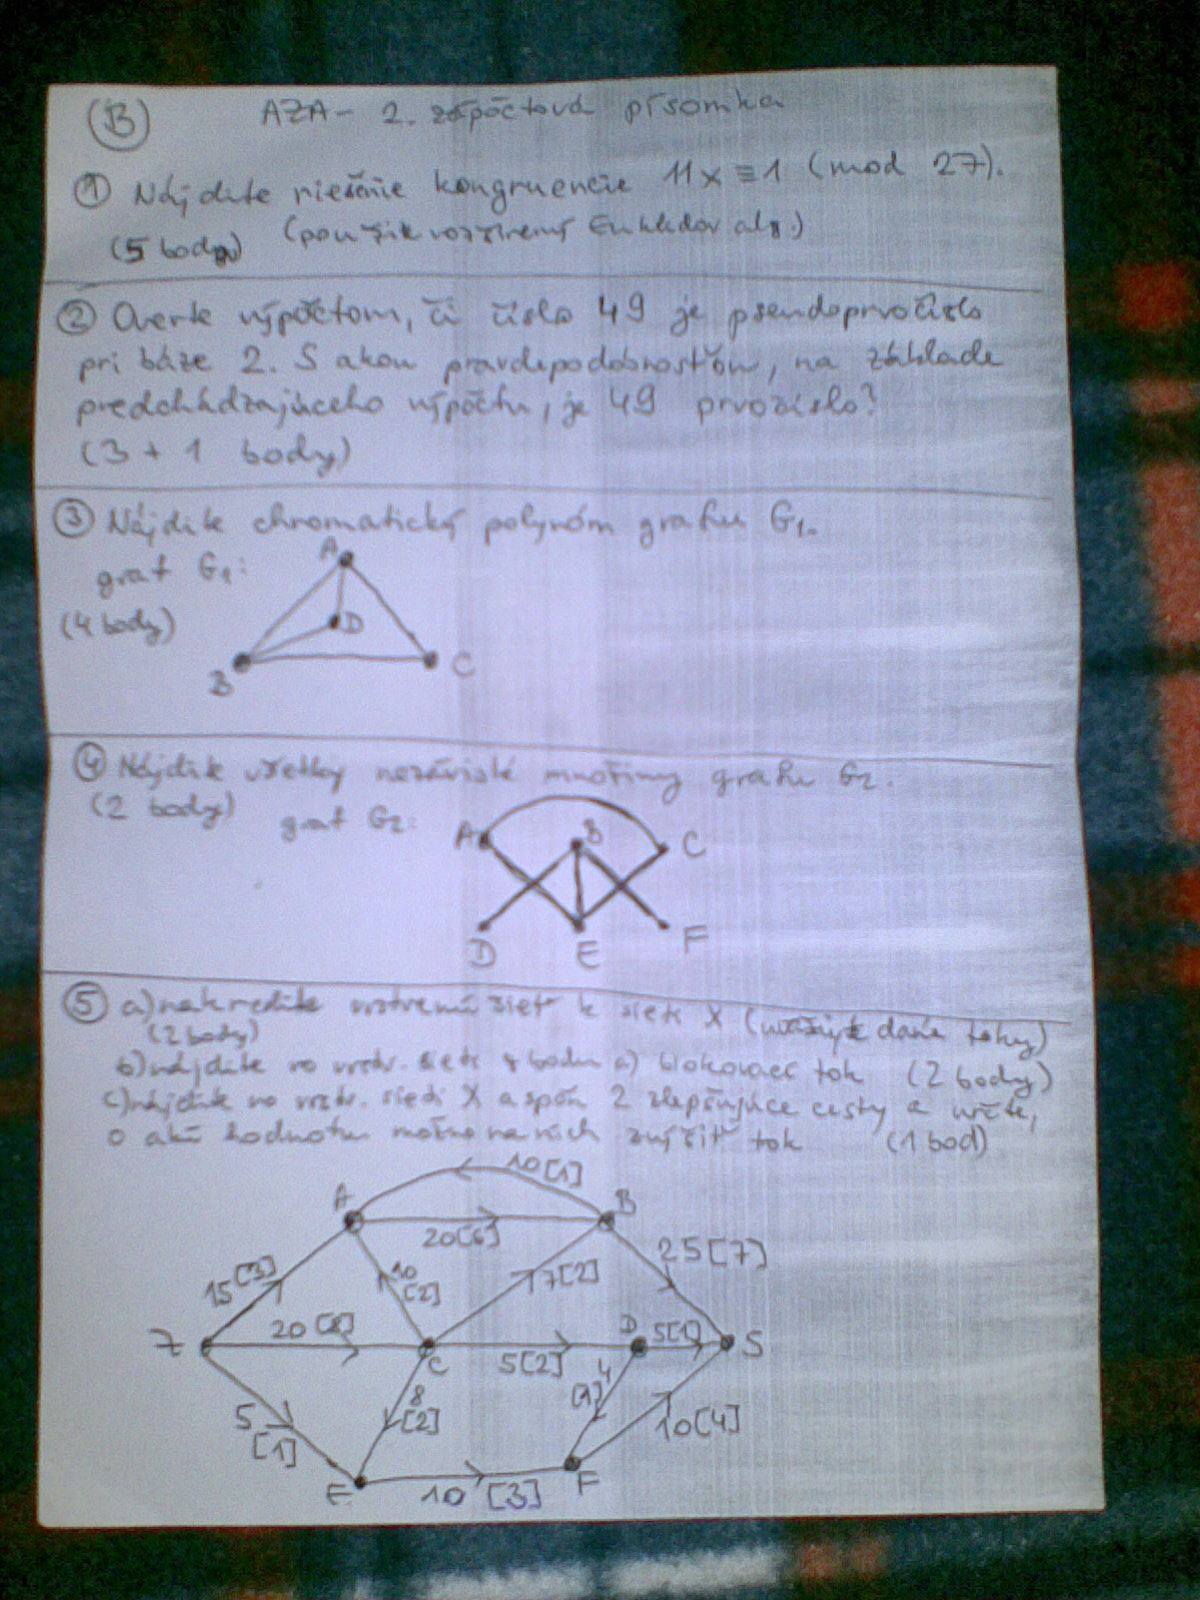 B AZA - 2. zápočtová písomka
1 Nájdite riešenie kongruencie 11x ≡ 1 (mod 27).
(5 body) (použite rozšírený Euklidov alg.)
2 Overte výpočtom, či číslo 49 je pseudoprvočíslo
pri báze 2. S akou pravdepodobnosťou, na základe
predchádzajúceho výpočtu, je 49 prvočíslo?
(3 + 1 body)
3 Nájdite chromatický polynóm grafu G1.
graf G1:
(4 body)
A
D
B
C
4 Nájdite všetky nezávislé množiny grafu G2.
(2 body) graf G2:
A B C
D E F
5 a) nakreslite vrstvenú sieť k sieti X (uvažujte dané toky)
(2 body)
b) nájdite vo vrstv. sieti z bodu a) blokovací tok (2 body)
c) nájdite vo vrstv. sieti X aspoň 2 zlepšujúce cesty a určte,
o akú hodnotu možno na nich zvýšiť tok (1 bod)
10[1]
A B
20[6]
25[7]
15[3]
10[2]
7[2]
20[8]
Z C D S
5[2]
5[1]
4[1]
8[2]
5[1]
10[4]
E F
10[3]